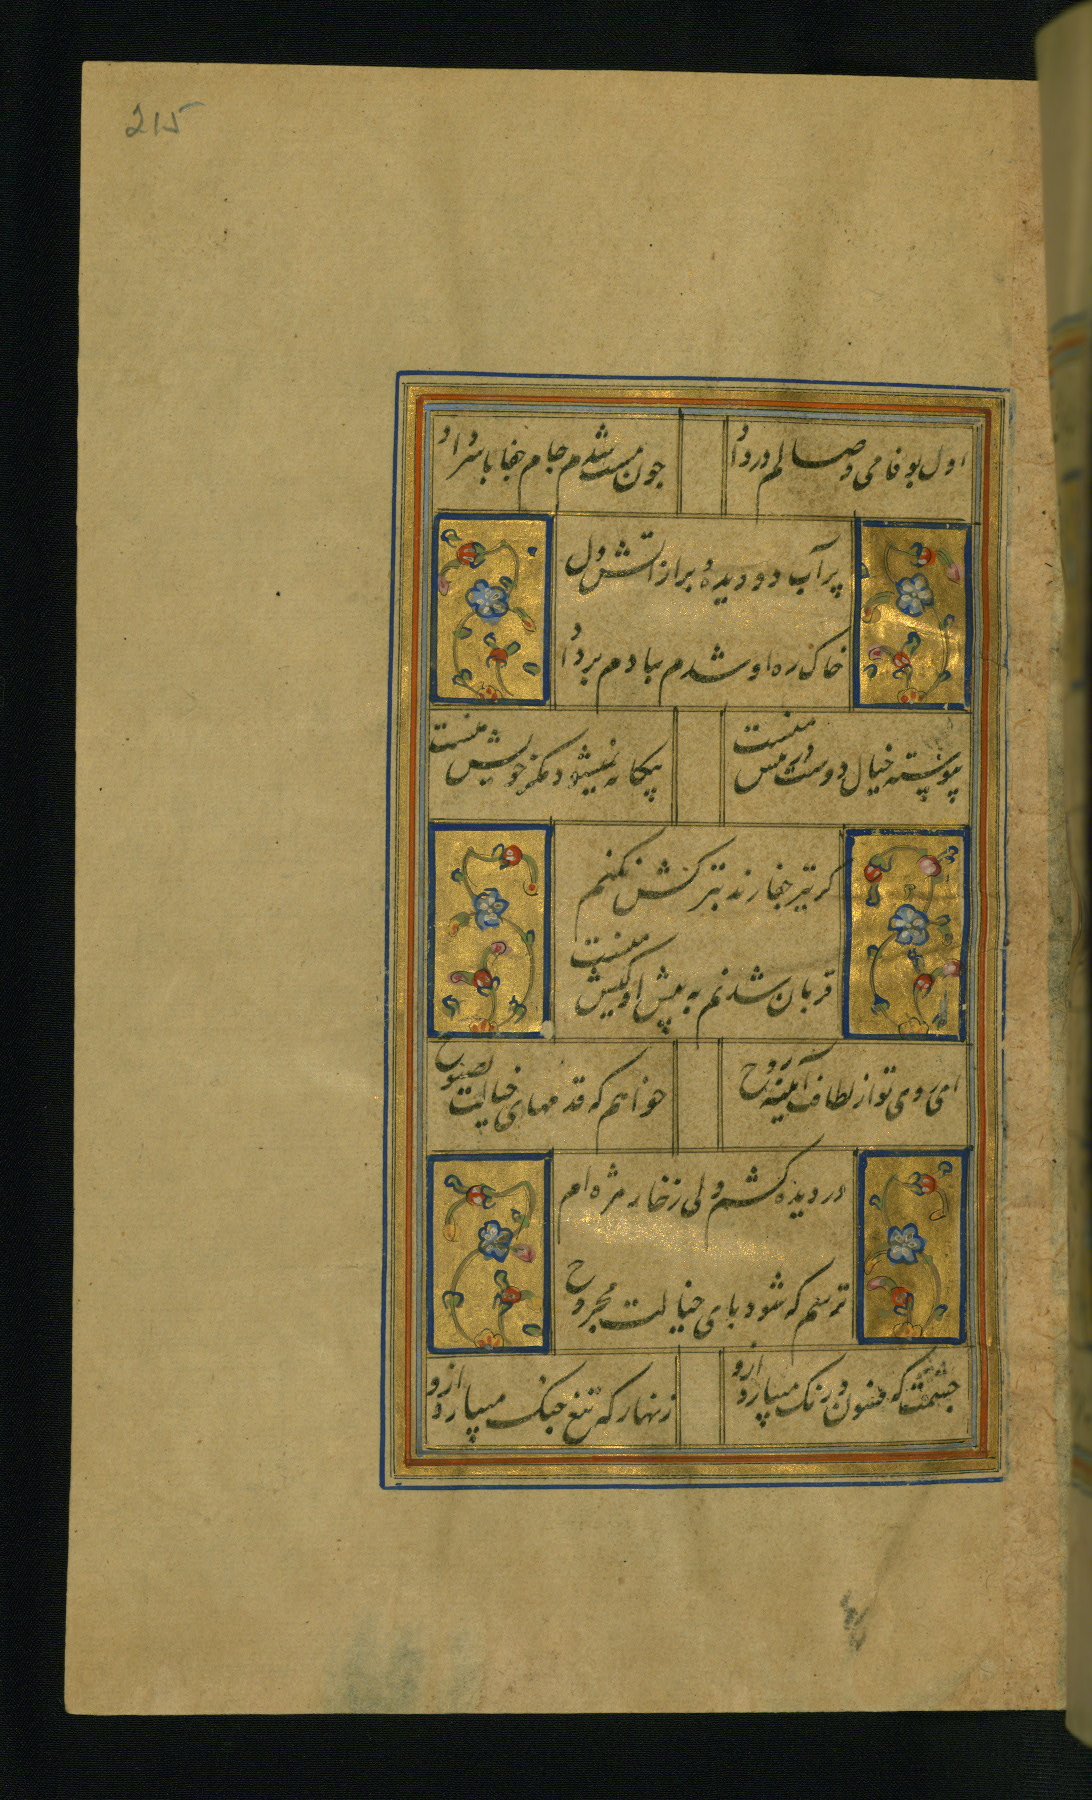 215
اول بوفا می وصالم در داد
چون مست شدم جام جفا با سر داد
پر آب دو دیده و پر از آتش دل
خاک ره او شدم ببادم بر داد
پیوسته خیال دوست منست
بیکانه نمیشود مکر خویش منست
کر تیر جفا زند بترکش نکنم
قربان شدنم به پیش او کیش منست
ای روی تو از لطافت آیینه روح
خواهم که قدمهای خیالت بصبوح
در دیده کشم ولی ز خار مژه ام
ترسم که شود پای خیالت مجروح
چشمت که فسون و رنک میبارد ازو
زنهار که تیغ جنک میبارد ازو